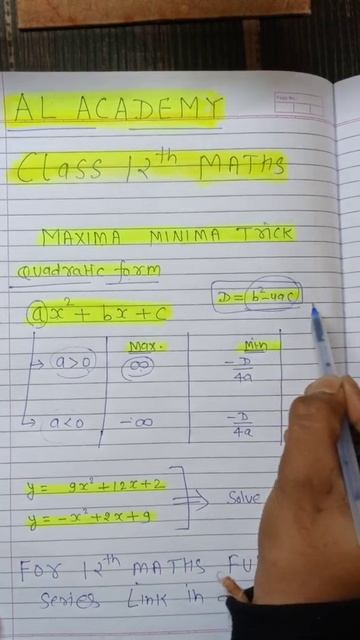 AL ACADEMY
Class 12th MATHS
MAXIMA MINIMA TRICK
Quadratic form
D = b²-4ac
ax² + bx + c
Max. Min
→ a>0 ∞ -D/4a
→ a<0 -∞ -D/4a
y = 9x²+12x+2
y = -x²+2x+9
⇒ Solve
FOR 12th MATHS FU
SERIES LINK in